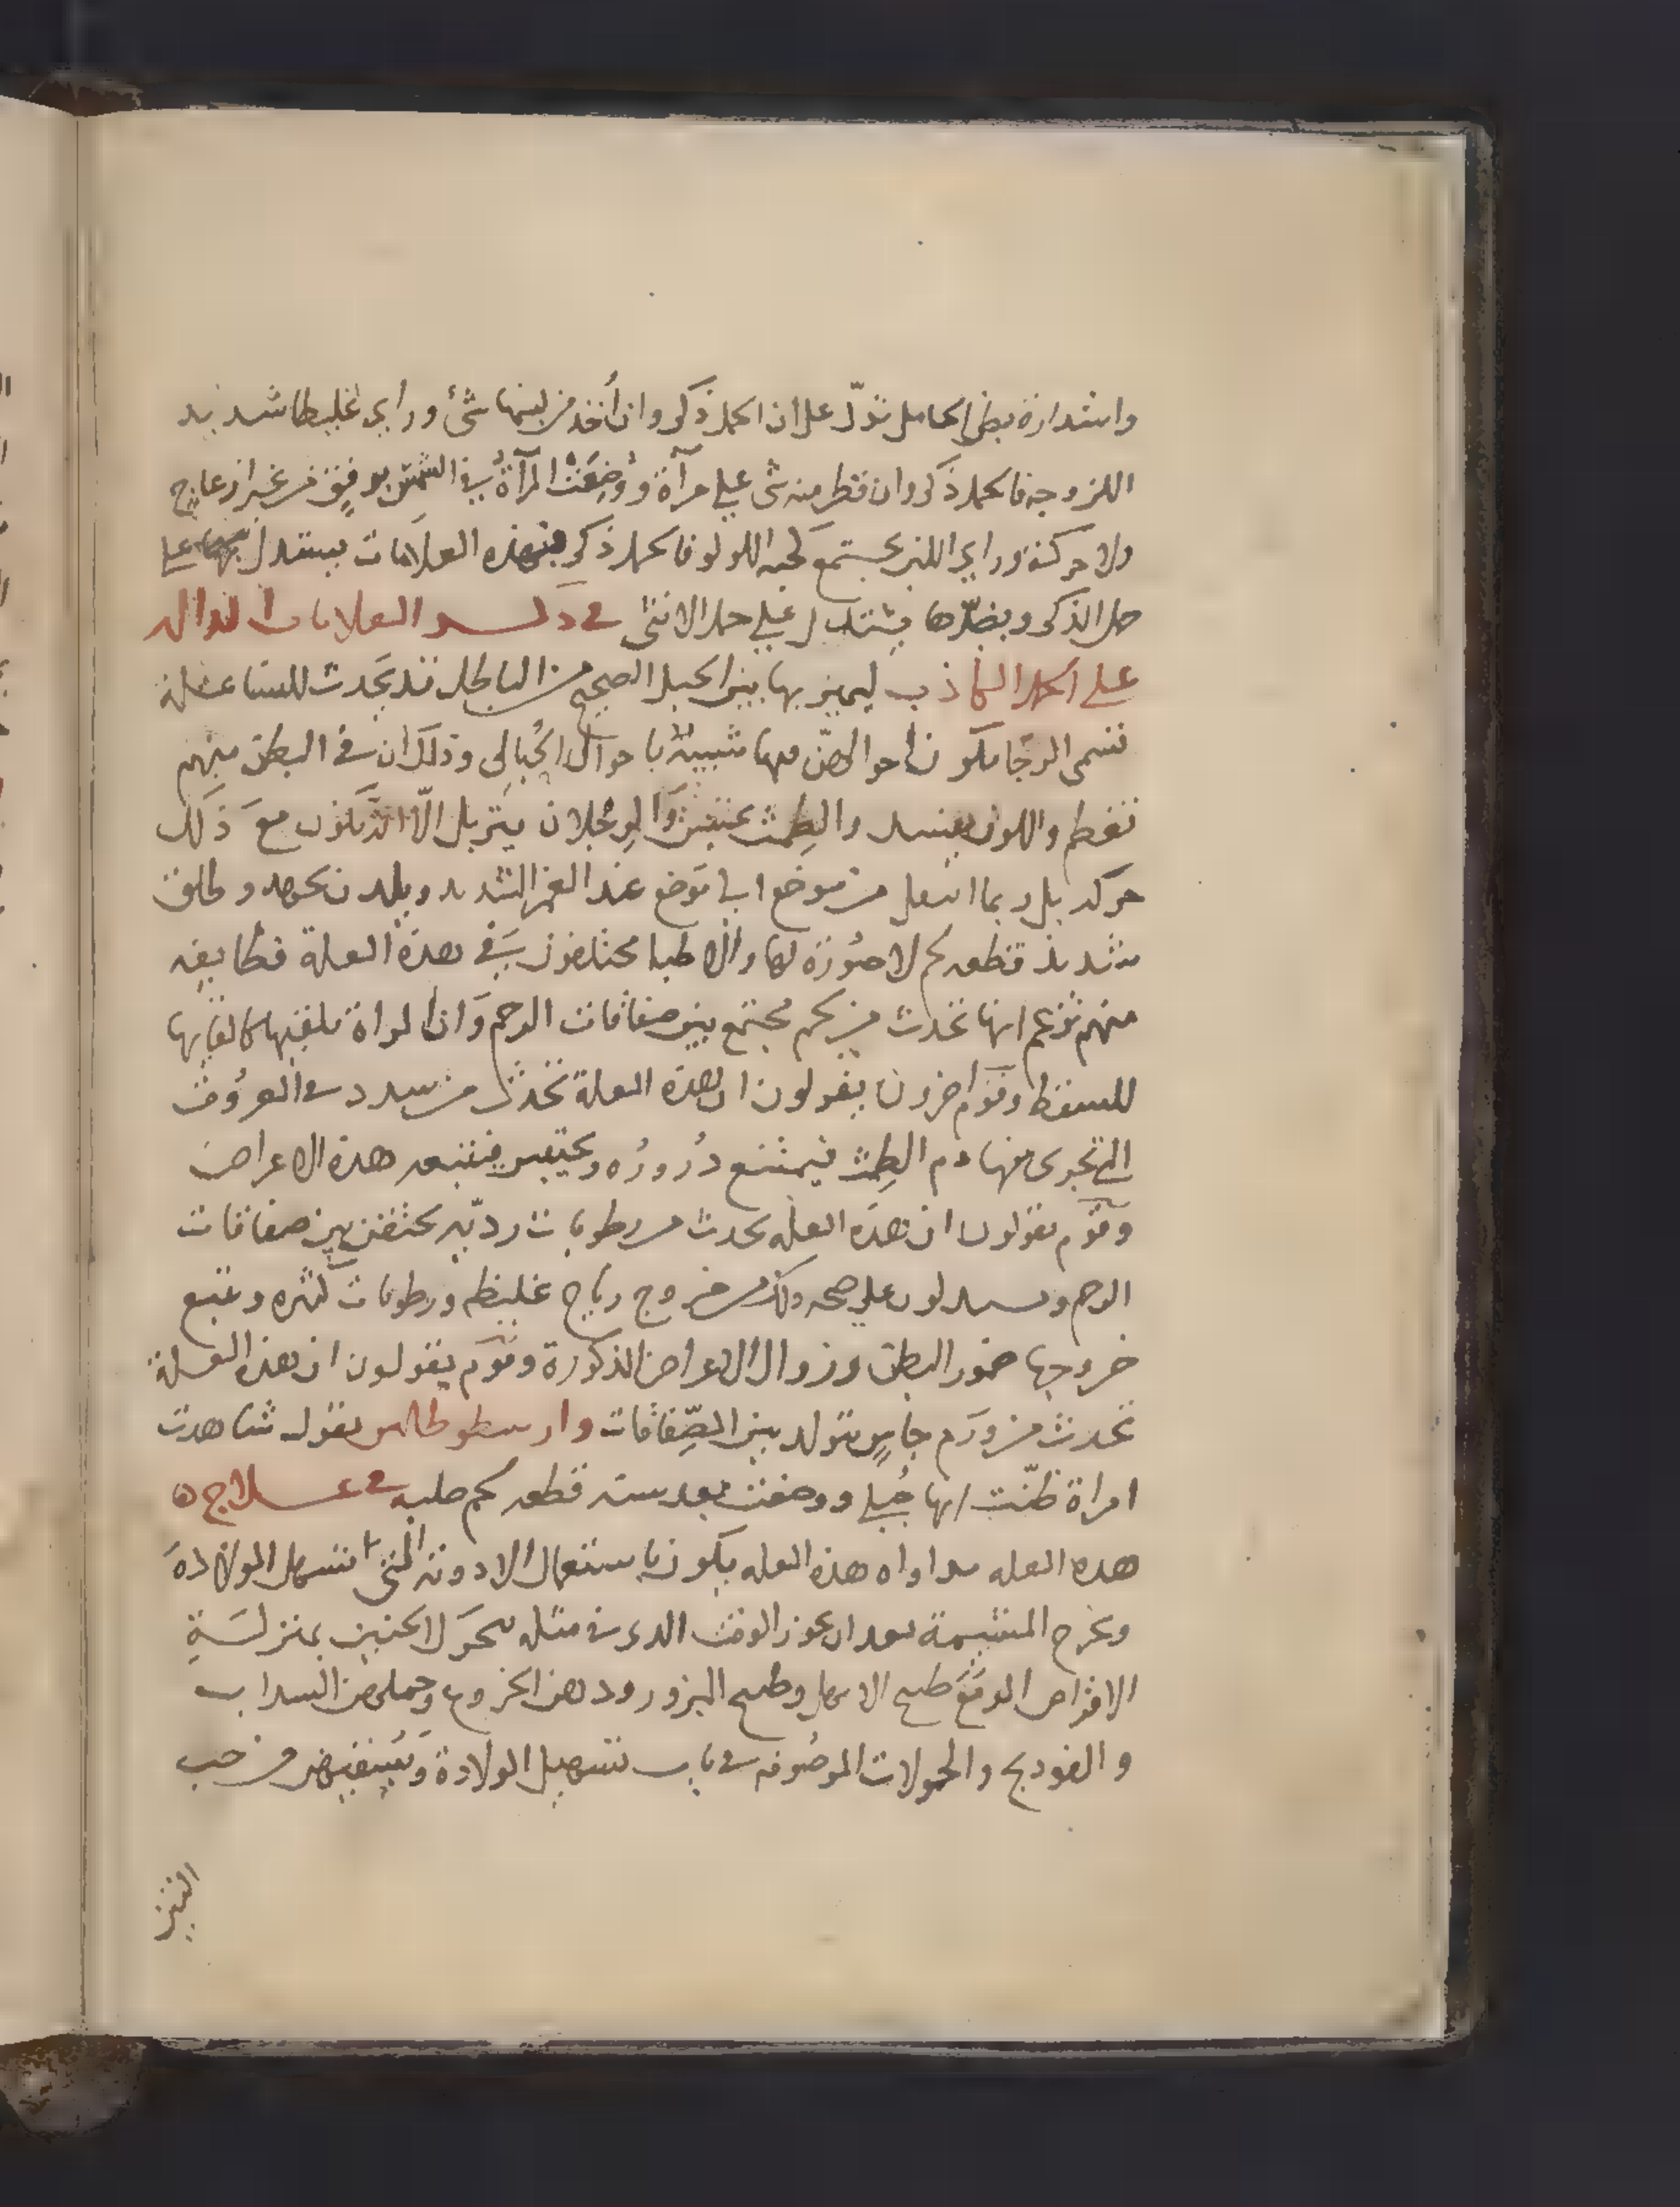 واستدارة بطن الحامل تدلّ على ان الحمل ذكر وان أُخذ من لبنها شئ وراي غليظا شديد
اللزوجه فالحمل ذكر وان قطر منه شى على مرآة ووُضِعَت المرآةُ في الشمس برفق من غير ازعاج
ولا حركة وراي اللبن يجتمع كحبه اللولو فالحمل ذكر فبهذه العلامات يستدل بها على
حمل الذكر وبضدّها يستدل على حمل الانثى في ذكر العلامات الداله
على الحمل الكاذب ليميز بها بين الحبل الصحيح من الباطل قد يَحدث للنسا علة
تسمى الرجا فتكون احوالهنّ معها شبيهة باحوال الحُبالى وذلك ان في البطن منهم
تعظم واللون يفسد والطمث يحتبس والرجلان يتربل الّا انه تكون معَ ذلك
حركه بل ربما انتقل من موضع الى موضع عند الغمز الشديد ويلدن بجهد وطلق
شديد قطعه لحم لا صُورَة لها والاطبا مختلفون في هذه العلة فطايفه
منهم تزعم انها تحدث من لحم مجتمع بين صفاقات الرحم وَان المراة تلقيها كالقايها
للسقط وقوم اخرون يقولون ان هذه العلة تحدث من سدد في العرُوق
التي تجرى فيها دم الطمِث فيمتنع دُرورُه ويحتبس فيتبعه هذه الاعراض
وقوم يقولون ان هذه العله تحدث من رطوبات رديّه تحتقن بين صفاقات
الرحم ويستدلون على صحه ذلك من خروج رياح غليظه ورطوبات كثيره ويتبع
خروجها ضمور البطن وزوال الاعراض المذكورة وقوم يقولون ان هذه العلة
تحدث من ورَم جاسٍ يتولد بين الصِّفاقات وارسطوطالس يقول شاهدت
امراة ظنّت انها حُبلى ووضعت بعد سنه قطعه لحم صلبه في عـلاج
هذه العله مداواه هذه العله يكون باستعمال الادوية التى تسهل الولادةَ
ويخرج المشيمة بعد ان يجوز الوقت الذى في مثله يتحرك الجنين بمنزلةِ
الاقراص المر مَعَ طبيخ الابهل وطبيخ البزور ودهن الخروع وحملهن السداب
والفودنج والحمولات الموصُوفه في باب تسهيل الولادة وَيُسقيهن من حب